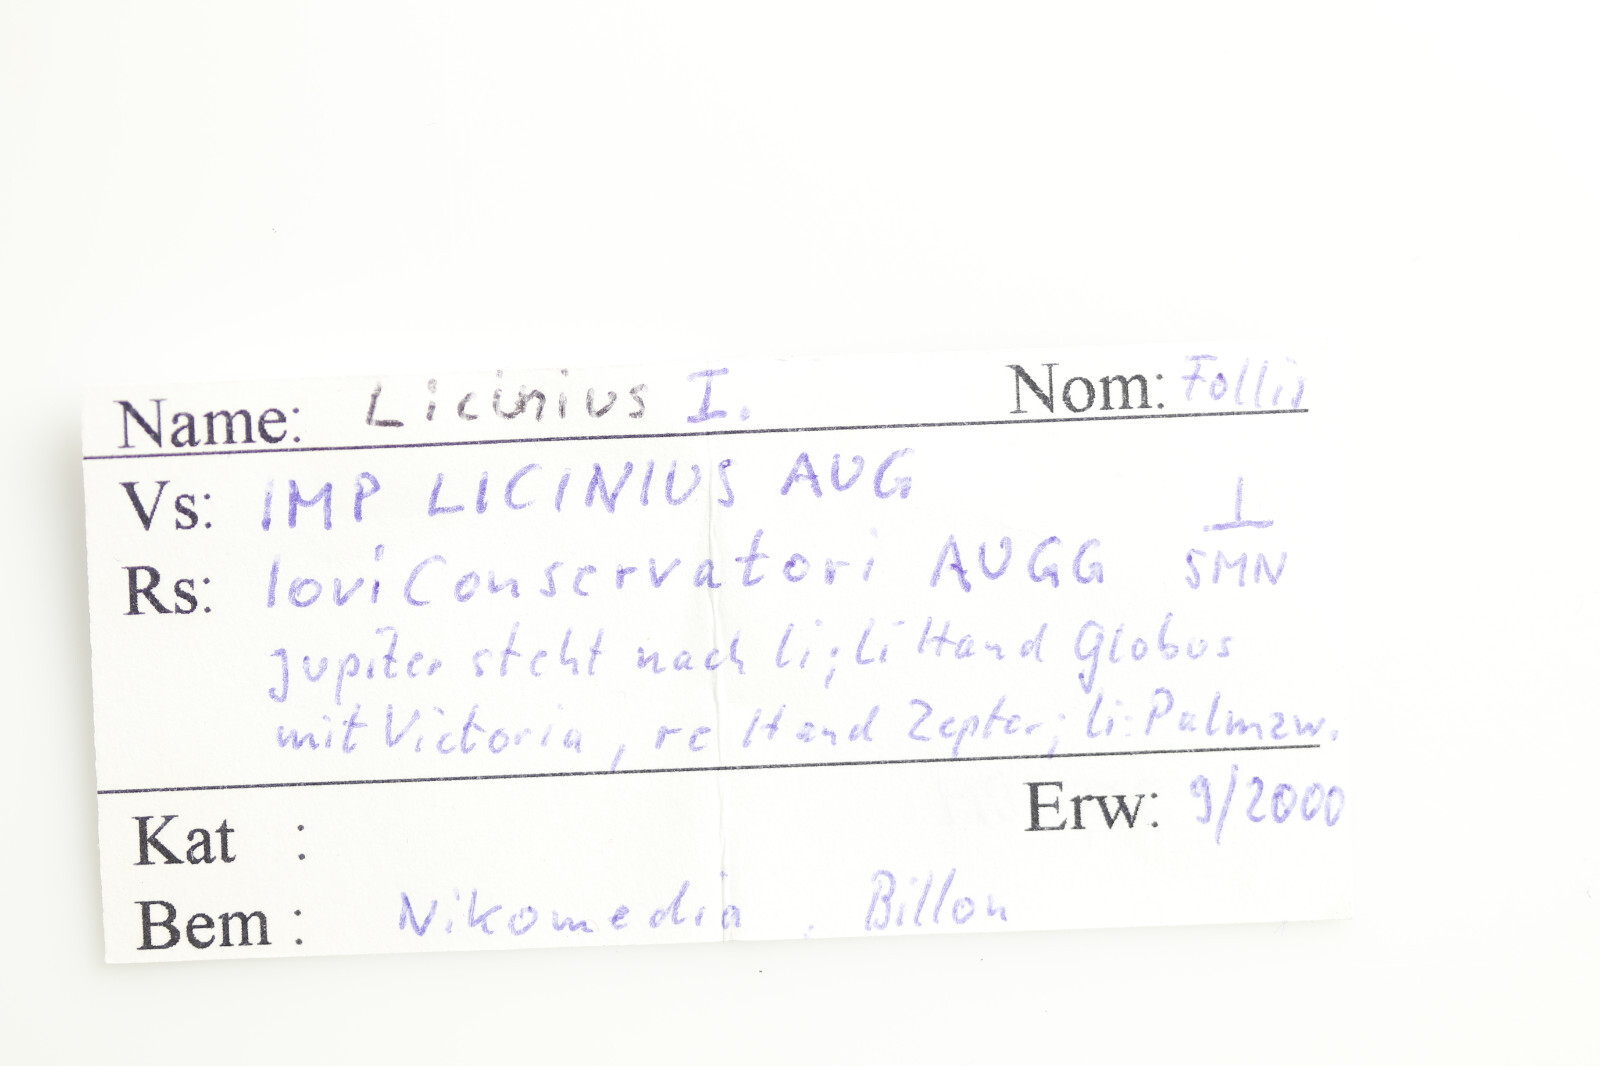 Name: Licinius I. Nom: Follis
Vs: IMP LICINIUS AUG
Rs: Iovi Conservatori AUGG ⊥ SMN
Jupiter steht nach li; li Hand Globus
mit Victoria, re Hand Zepter; li: Palmzw.
Kat : Erw: 9/2000
Bem : Nikomedia . Billon